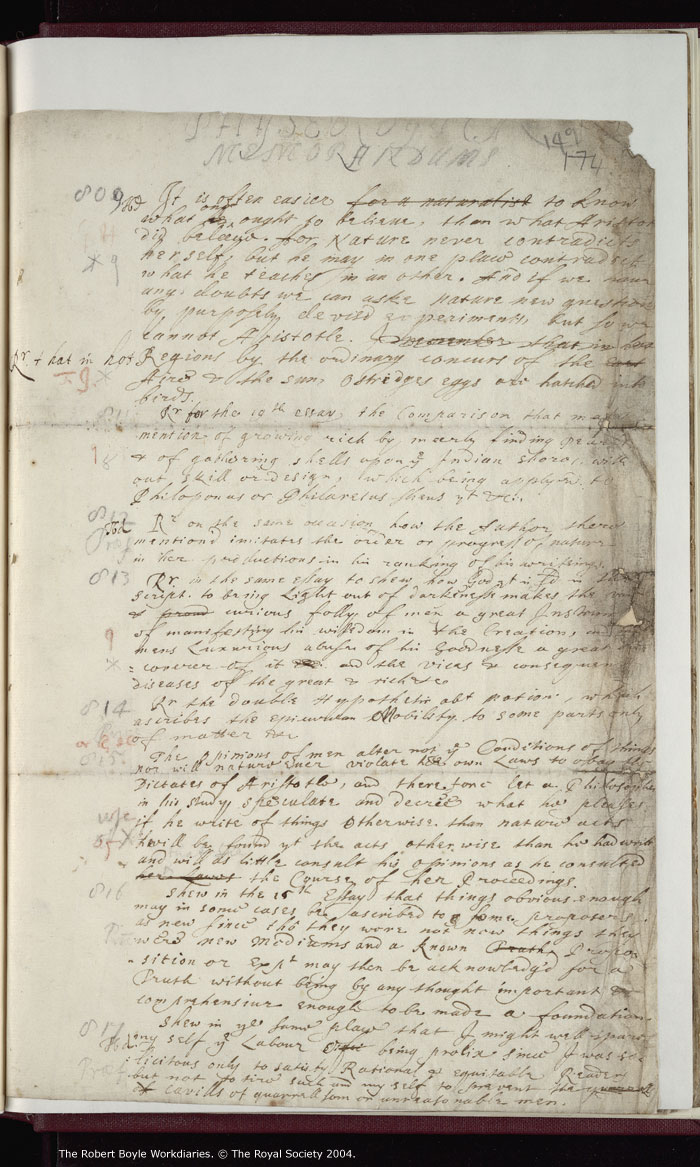 PHYSEOLOGICA
MEMORANDUMS
149
174
809 It is often easier for a naturalist to know
what one ought to believe, than what Aristot
did believe. For Nature never contradicts
herself, but he may in one place contradict
what he teaches in an other. And if we have
any doubts we can aske nature new question
by purposely devis'd experiments, but so we
cannot Aristotle. Remember that in hot
Rr. that in hot Regions by the ordinary concurs of the
Aire & the sun, Ostridges eggs are hatched into
birds.
Rr. for the 10th essay, the Comparison that may
mention of growing rich by meerly finding Pearls
& of gathering shells upon ye Indian shore, with
out skill or design, which being apply'd to
Philoponus or Philaretus shews yt &c.
812 Rr. on the same occasion how the Author there
mention'd imitates the order or progress of nature
in her productions in his ranking of his writings.
813 Rr. in the same essay to shew how God yt is sd. in the
script. to bring Light out of darkness makes the
& proud curious folly of men a great Instrum
of manifesting his wissdom in the Creation, and
mens Luxurious abuse of his Goodness a great
coverer of it and the vices & consequen
diseases of the great & rich &c.
814 Rr the double Hypothesis abt motion, which
ascribes the epicurean Mobility to some parts only
of matter &c
815 The Opinions of men alter not ye Conditions of things
nor will nature ever violate her own Laws to obay the
Dictates of Aristotle, and therefore let a Philosopher
in his study speculate and decree what he pleases,
if he write of things otherwise than nature acts
he will be found yt she acts otherwise than he had writt
and will as little consult his opinions as he consulted
her Laws the Course of her Proceedings.
816 Shew in the 15th Essay that things obvious enough
may in some cases be ascribed to ye former proposers
as new since tho they were not new things they
were new Mediums and a known Truth Propo
sition or Expt may then be acknowledg'd for a
Truth without being by any thought important &
comprehensive enough to be made a foundation.
817 Shew in ye same place that I might well spare
my self ye Labour of being prolix since I was so
licitous only to satisfy Rational & equitable Readers
but not to tire such and my self to prevent the quarrell
of cavills of quarrelsom or unreasonable men.
The Robert Boyle Workdiaries. © The Royal Society 2004.